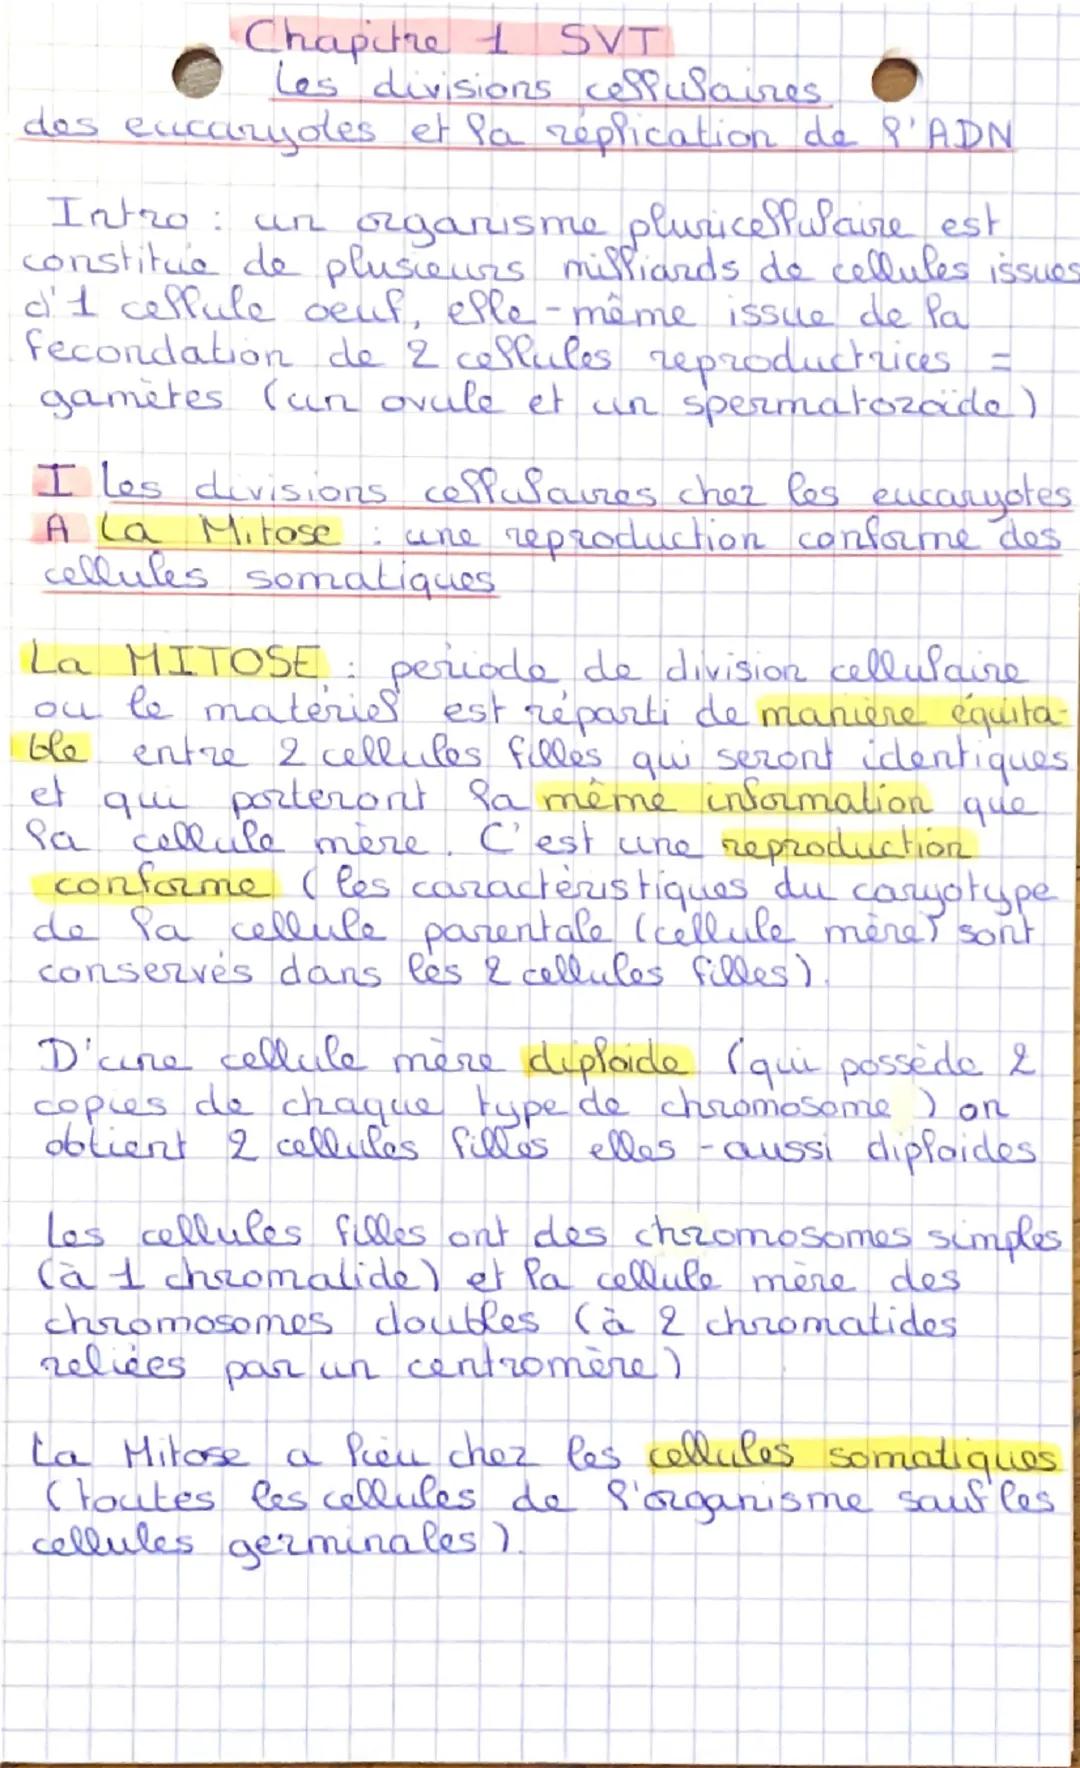 Chapitre 1 SVT
Les divisions cellulaires
des eucaryotes et la réplication de l'ADN
Intro : un organisme pluricellulaire est
constitué de plusieurs milliards de cellules issues
d'1 cellule oeuf, elle-même issue de la
fecondation de 2 cellules reproductrices =
gamètes (un ovule et un spermatozoïde)
I Les divisions cellulaires chez les eucaryotes
A La Mitose : une reproduction conforme des
cellules somatiques
La MITOSE : période de division cellulaire
ou le matériel est réparti de manière équita-
ble entre 2 cellules filles qui seront identiques
et qui porteront la même information que
la cellule mère. C'est une reproduction
conforme (les caractéristiques du caryotype
de la cellule parentale (cellule mère) sont
conservés dans les 2 cellules filles).
D'une cellule mère diploide (qui possède 2
copies de chaque type de chromosome) on
obtient 2 cellules filles elles-aussi diploides
Les cellules filles ont des chromosomes simples
(à 1 chromatide) et la cellule mère des
chromosomes doubles (à 2 chromatides
reliées par un centromère)
La Mitose a lieu chez les cellules somatiques
(toutes les cellules de l'organisme sauf les
cellules germinales).